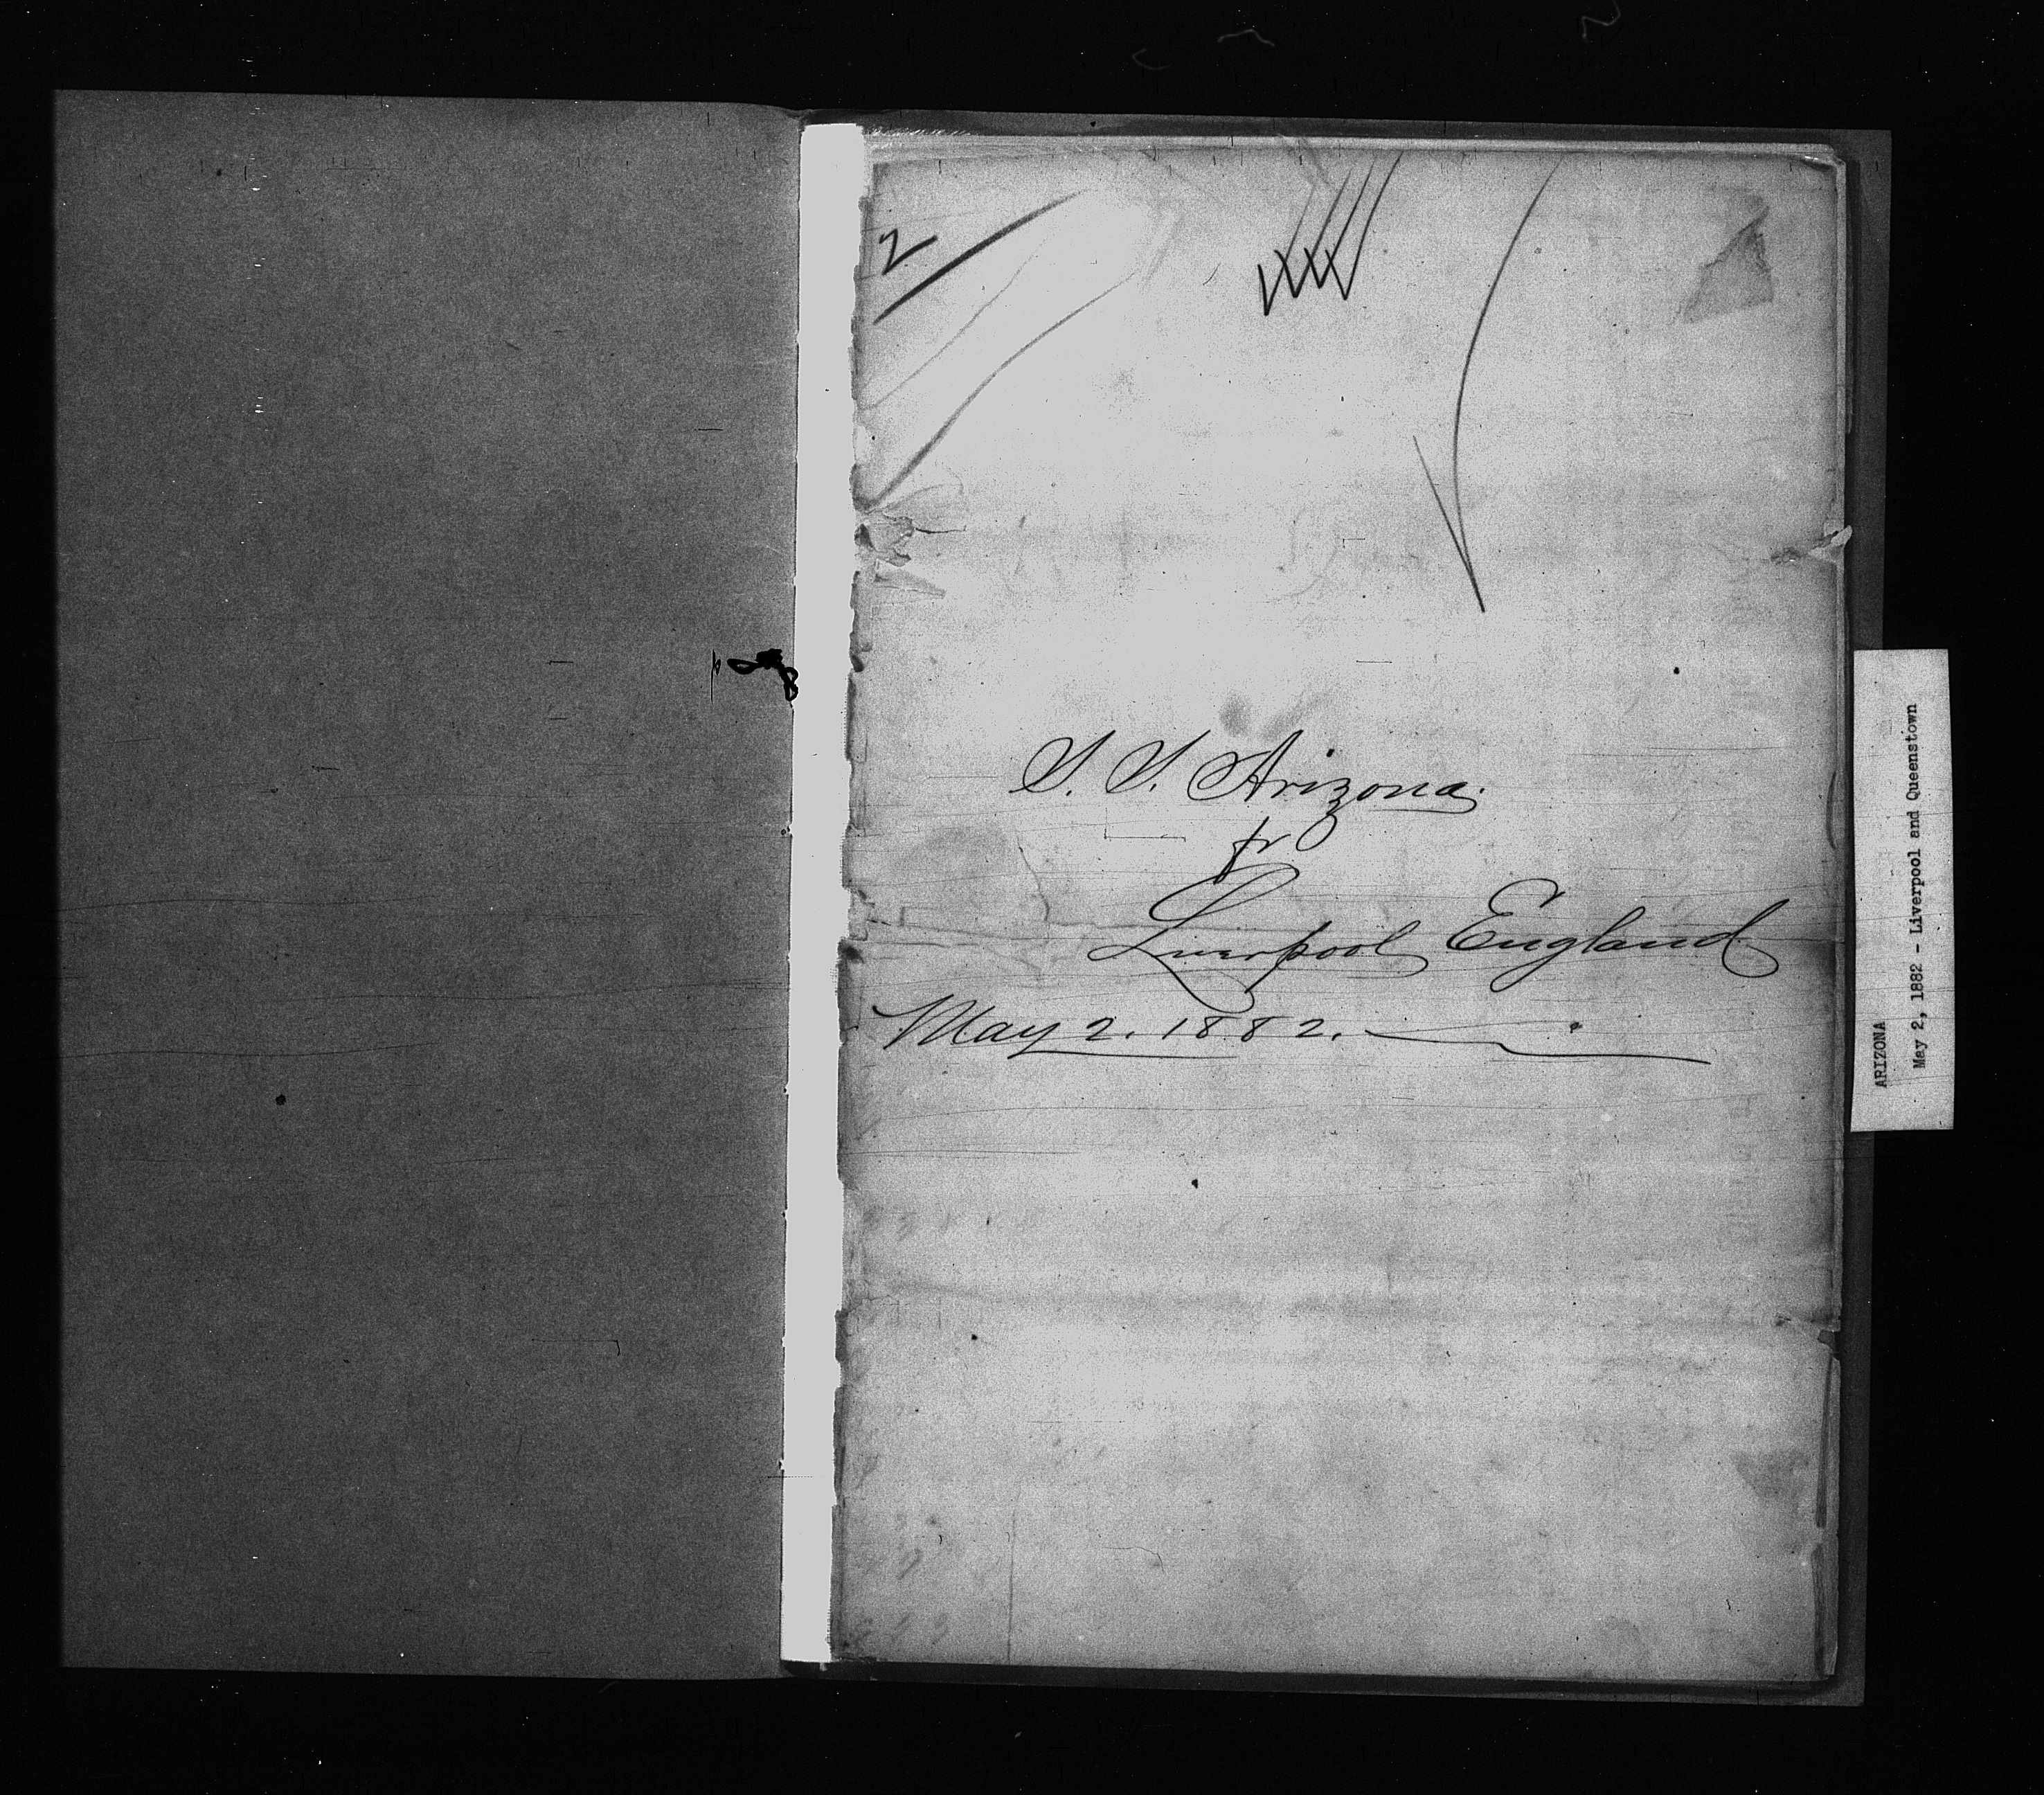 2
S. S. Arizona.
fr
Liverpool England
May 2. 1882.
ARIZONA
May 2, 1882 - Liverpool and Queenstown